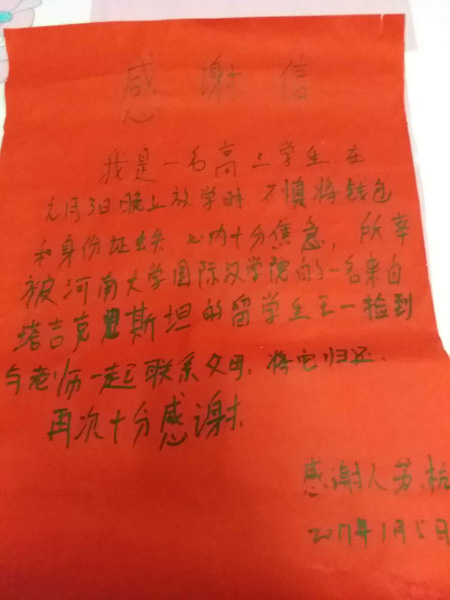 感谢信
我是一名高三学生，在
元月3日晚上放学时不慎将钱包
和身份证丢失，心内十分焦急，所幸
被河南大学国际汉学院的一名来自
塔吉克斯坦的留学生王一捡到
与老师一起联系父母，将它归还.
再次十分感谢.
感谢人苏杭
2017年1月5日